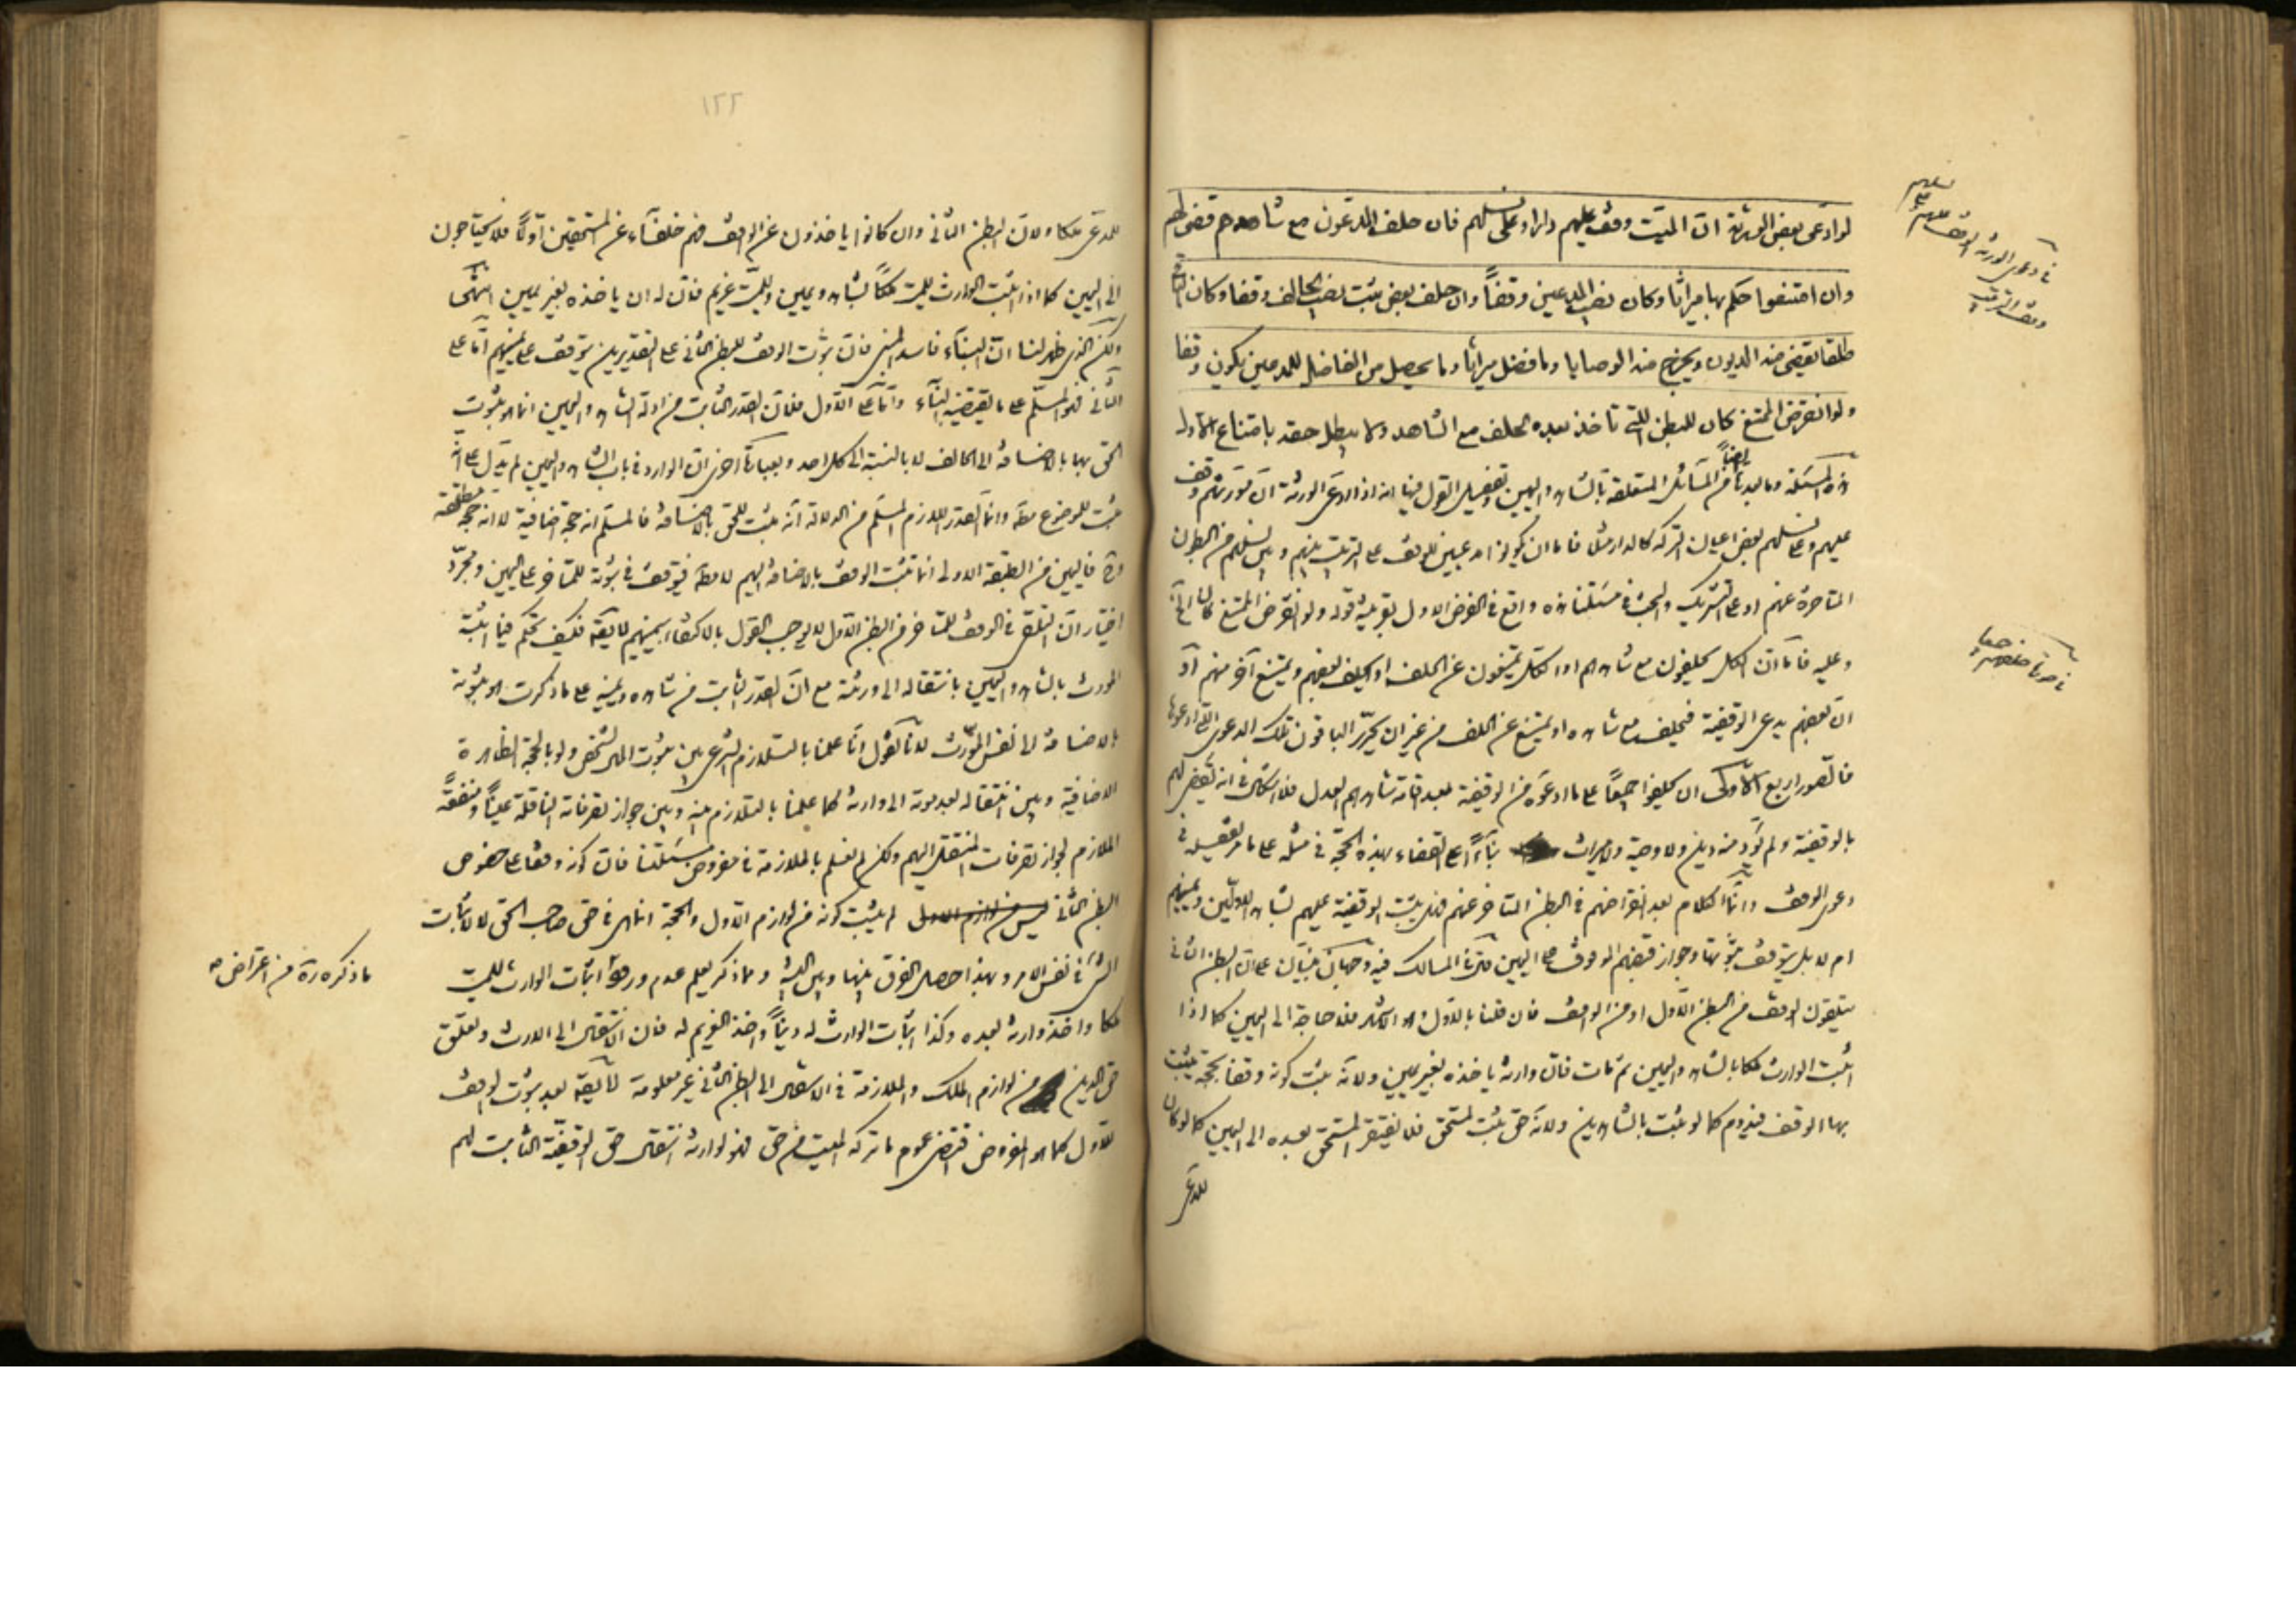 لو ادعى بعض الورثة ان الميت وقف عليهم دارا وعلى نسلهم فان حلف المدعون مع شاهدهم قضى لهم
وان امتنعوا حكم بها ميراثا وكان نصيب المدعين وقفاً وان حلف بعض ثبت نصيب الحالف وقفا وكان الباقي
طلقا يقضى منه الديون ويخرج منه الوصايا وما فضل ميراثا وما يحصل من الفاضل للمدعين يكون وقفا
ولو انقرض الممتنع كان للبطن التي تأخذ بعده الحلف مع الشاهد ولا يبطل حقه بامتناع الأول
هذه المسئلة وما بعدها ايضاً من المسائل المتعلقة بالشاهد واليمين وتفصيل القول فيها انه اذا ادعى الورثة ان مورثهم وقف
عليهم وعلى نسلهم بعض اعيان التركة كالدار مثلا فاما ان يكونوا مدعيين للوقف على الترتيب بينهم وبين نسلهم من البطون
المتاخرة عنهم او على التشريك والبحث في مسئلتنا هذه واقع في الفرض الاول بقرينة قوله ولو انقرض الممتنع كان
وعليه فاما ان الكل يحلفون مع شاهدهم او الكل يمتنعون عن الحلف او يحلف بعضهم ويمتنع آخر منهم او
ان بعضهم يدعى الوقفية فيحلف مع شاهده او يمتنع عن الحلف من غير ان يحرر الباقون تلك الدعوى التي ادعوها
فالصور اربع الأولى ان يحلفوا جميعاً على ما ادعوه من الوقفية بعد اقامة شاهدهم العدل فلا اشكال في انه يقضى لهم
بالوقفية ولم يؤد منه دين ولا وصية ولا ميراث بناءً على القضاء بهذه الحجة في مثله على ما مر تفصيله في
دعوى الوقف وانما الكلام بعد انقراضهم في البطن المتاخر عنهم فهل يثبت الوقفية عليهم بشاهد الاولين ويمينهم
ام لا بل يتوقف ثبوتها وجواز قبضهم الوقوف على اليمين منهم المسالك فيه وجهان مبنيان على ان البطن الثاني
يتلقون الوقف من البطن الأول او من الواقف فان قلنا بالاول وهو الاشهر فلا حاجة الى اليمين كما اذا
اثبت الوارث ملكا بالشاهد واليمين ثم مات فان وارثه ياخذه بغير يمين ولانه يثبت كونه وقفا بحجة يثبت
بها الوقف فيدوم كما لو ثبت بالشاهدين ولانه حق يثبت لمستحق فلا يفتقر المستحق بعده الى اليمين كما لو كان
للمدعى
في دعوى الورثة الوقف عليهم وعلى نسلهم
وقف الترتيب
في صورة حلفهم جميعا
١٢٢
للمدعى ملكا ولان البطن الثاني وان كانوا ياخذون عن الواقف فهم خلفاء عن المستحقين اولا فلا يحتاجون
الى اليمين كما اذا اثبت الوارث للميت ملكاً بشاهد ويمين وللميت غريم فان له ان ياخذه بغير يمين انتهى
ولكن الذي ظهر لنا ان البناء فاسد المبنى فان ثبوت الوقف للبطن الثاني على التقديرين يتوقف على يمينهم اما على
الثاني فهو المسلم على ما يقتضيه البناء واما على الاول فلان القدر الثابت من ادلة الشاهد واليمين انما هو ثبوت
الحق بها بالاضافة الى الحالف لا بالنسبة الى كل احد وبعبارة اخرى ان الوارد في باب الشاهد واليمين لم يدل على انه
يثبت للموضوع مطلقا وانما القدر اللازم المسلم من الدلالة انه يثبت للحق بالاضافة فالمسلم انه حجة اضافية لا انه حجة مطلقة
وح فاليمين من الطبقة الاولى انما تثبت الوقف بالاضافة اليهم لا مطلقا فيتوقف في ثبوته للمتأخر على اليمين ومجرد
اختيار ان التلقي في الوقف للمتاخر من البطن الاول لا يوجب القول بالاكتفاء بيمينهم لا يقال فكيف تحكم فيما اثبت
المورث بالشاهد واليمين بانتقاله الى ورثته مع ان القدر الثابت من شاهده ويمينه على ما ذكرت هو ثبوته
بالاضافة الى نفس المورث لانا نقول انا علمنا بالتلازم الشرعي بين ثبوت الملك لشخص ولو بالحجة الظاهرة
الاضافية وبين انتقاله بعد موته الى وارثه كما علمنا بالتلازم بينه وبين جواز تصرفاته الناقلة عيناً ومنفعةً
الملازم لجواز تصرفات المنتقل اليهم ولكن لم نعلم بالملازمة في مفروض مسئلتنا فان كونه وقفا على خصوص
البطن الثاني ليس من لوازم الاول لم يثبت كونه من لوازم الاول والحجة انما هي في حق صاحب الحق لا لاثبات
الشيء في نفس الامر وبهذا حصل الفرق بينها وبين البينة ومما ذكر يعلم عدم ورود اثبات الوارث للميت
ملكا واخذ وارثه بعده وكذا اثبات الوارث له ديناً واخذ الغريم له فان الانتقال الى الارث وتعلق
حق الدين من لوازم الملك والملازمة في الانتقال الى البطن الثاني غير معلومة لا يقال بعد ثبوت الوقف
للاول كما هو المفروض اقتضى عموم ما تركه الميت من حق فهو لوارثه انتقال حق الوقفية الثابت لهم
ما ذكره من اعتراض